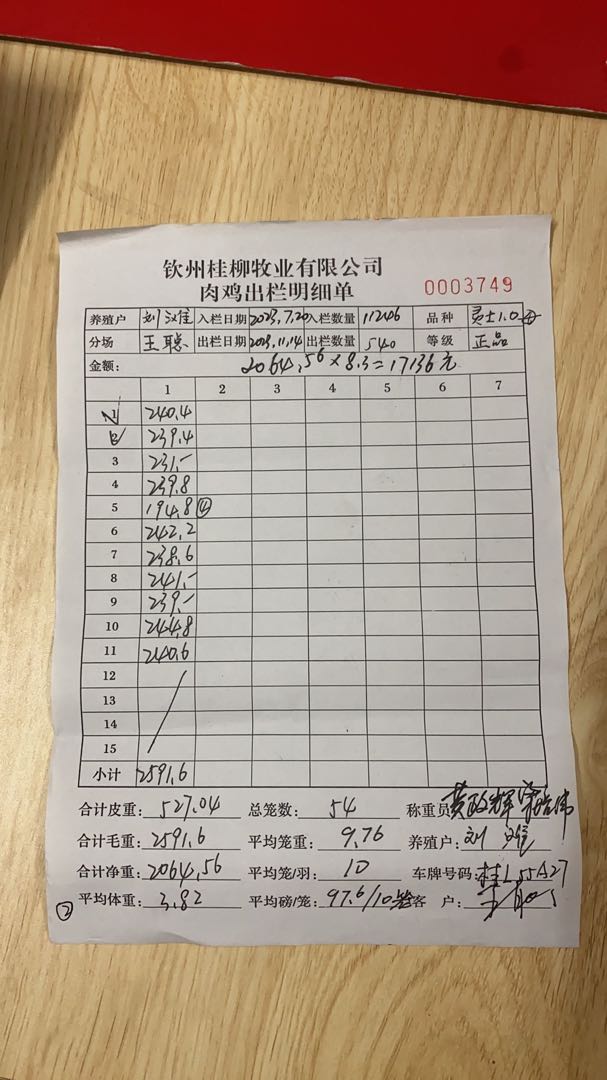 钦州桂柳牧业有限公司
肉鸡出栏明细单 0003749
养殖户 刘 入栏日期 2023.7.20 入栏数量 11246 品种 1.0
分场 王聪 出栏日期 2023.11.14 出栏数量 540 等级 正品
金额: 2064.56×8.3=17136元
1 2 3 4 5 6 7
1 240.4
2 239.4
3 231.-
4 239.8
5 194.8 ④
6 242.2
7 238.6
8 241.-
9 239.-
10 244.8
11 240.6
12
13
14
15
小计 2591.6
合计皮重: 527.04 总笼数: 54 称重员 黄政辉
合计毛重: 2591.6 平均笼重: 9.76 养殖户: 刘
合计净重: 2064.56 平均笼/羽: 10 车牌号码: 桂L55A27
② 平均体重: 3.82 平均磅/笼: 97.6/10 客 户: